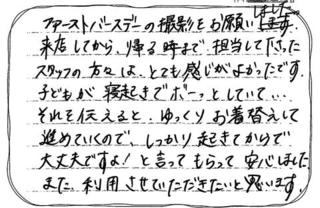 ファーストバースデーの撮影をお願いしました。
来店してから、帰る時まで、担当して下さった
スタッフの方々は、とても感じがよかったです。
子どもが寝起きでボーっとしていて…
それを伝えると、ゆっくりお着替えして
進めていくので、しっかり起きてからで
大丈夫ですよ！と言ってもらって安心しました。
また、利用させていただきたいと思います。